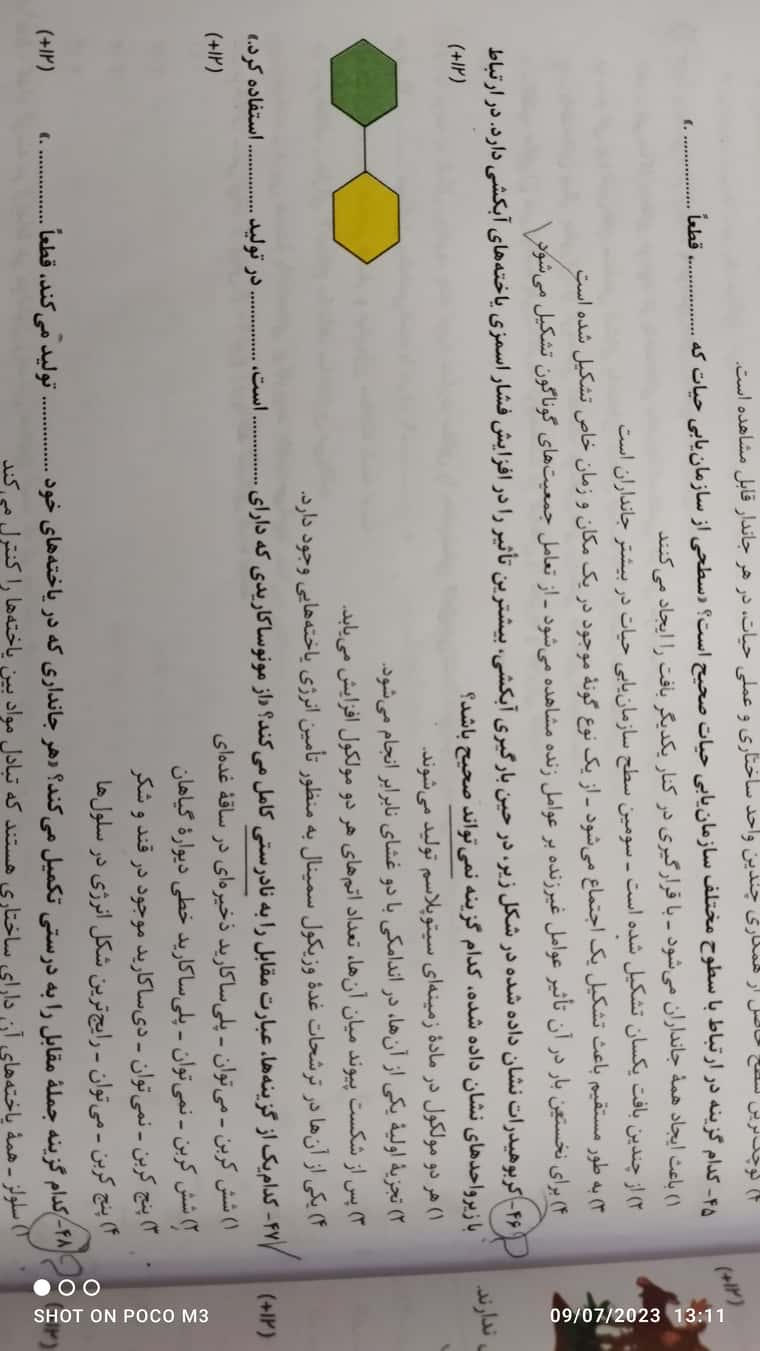 حاصل از همکاری چندین واحد ساختاری و عملی حیات، در هر جاندار قابل مشاهده است.
۴۵- کدام گزینه در ارتباط با سطوح مختلف سازمان‌یابی حیات صحیح است؟ «سطحی از سازمان‌یابی حیات که ............... قطعاً ............... .»
۱) باعث ایجاد همهٔ جانداران می‌شود - با قرارگیری در کنار یکدیگر بافت را ایجاد می‌کنند
۲) از چندین بافت یکسان تشکیل شده است - سومین سطح سازمان‌یابی حیات در بیشتر جانداران است
۳) به طور مستقیم باعث تشکیل یک اجتماع می‌شود - از یک نوع گونهٔ موجود در یک مکان و زمان خاص تشکیل شده است
۴) برای نخستین بار در آن تأثیر عوامل غیرزنده بر عوامل زنده مشاهده می‌شود - از تعامل جمعیت‌های گوناگون تشکیل می‌شود
۴۶- کربوهیدرات نشان داده شده در شکل زیر، در حین بارگیری آبکشی، بیشترین تأثیر را در افزایش فشار اسمزی یاخته‌های آبکشی دارد. در ارتباط
با زیرواحدهای نشان داده شده، کدام گزینه نمی‌تواند صحیح باشد؟
(+۱۲)
۱) هر دو مولکول در مادهٔ زمینه‌ای سیتوپلاسم تولید می‌شوند.
۲) تجزیهٔ اولیهٔ یکی از آن‌ها، در اندامکی با دو غشای نابرابر انجام می‌شود.
۳) پس از شکست پیوند میان آن‌ها، تعداد اتم‌های هر دو مولکول افزایش می‌یابد.
۴) یکی از آن‌ها در ترشحات غدهٔ وزیکول سمینال به منظور تأمین انرژی یاخته‌هایی وجود دارد.
۴۷- کدام‌یک از گزینه‌ها، عبارت مقابل را به نادرستی کامل می‌کند؟ «از مونوساکاریدی که دارای ............ است، ............ در تولید ............ استفاده کرد.»
(+۱۲)
۱) شش کربن - می‌توان - پلی‌ساکارید ذخیره‌ای در ساقهٔ غده‌ای
۲) شش کربن - نمی‌توان - پلی‌ساکارید خطی دیوارهٔ گیاهان
۳) پنج کربن - نمی‌توان - دی‌ساکارید موجود در قند و شکر
۴) پنج کربن - می‌توان - رایج‌ترین شکل انرژی در سلول‌ها
۴۸- کدام گزینه جملهٔ مقابل را به درستی تکمیل می‌کند؟ «هر جانداری که در یاخته‌های خود ............ تولید می‌کند، قطعاً ............ .»
(+۱۲)
سلولز - همهٔ یاخته‌های آن دارای ساختاری هستند که تبادل مواد بین یاخته‌ها را کنترل می‌کند
(+۱۲)
ندارند.
(+۱۲)
SHOT ON POCO M3
09/07/2023 13:11